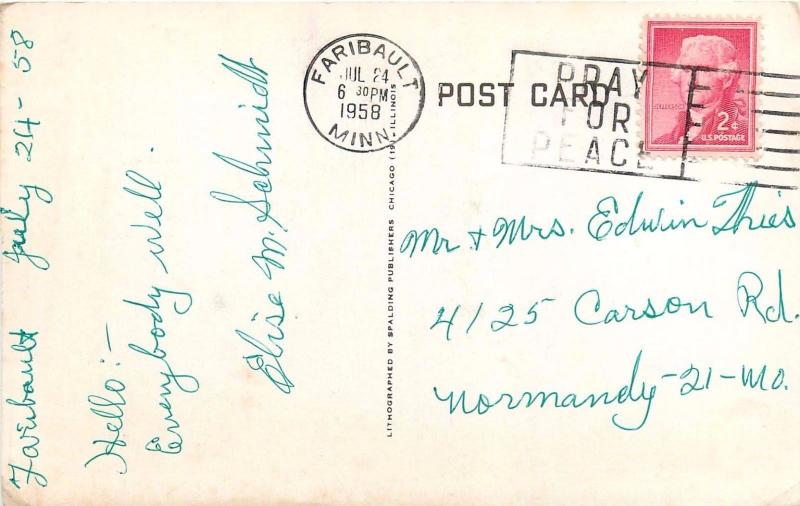 Faribault July 24-58
Hello:-
Everybody well.
Elise M. Schmidt
FARIBAULT
JUL 24
6 30 PM
1958
MINN.
POST CARD
PRAY
FOR
PEACE
2¢
U.S. POSTAGE
LITHOGRAPHED BY SPALDING PUBLISHERS CHICAGO (19), ILLINOIS
Mr & Mrs. Edwin Thies
4125 Carson Rd.
Normandy-21-Mo.